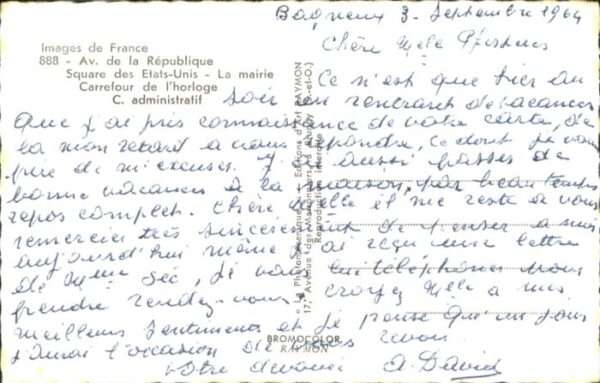 Images de France
888 - Av. de la République
Square des Etats-Unis - La mairie
Carrefour de l'horloge
C. administratif
Bagneux 3 Septembre 1964
Chère Melle
Ce n'est que hier au
soir en rentrant de vacances
que j'ai pris connaissance de votre carte, de
là mon retard à vous répondre, ce dont je vous
prie de m'excuser. J'ai aussi passés de
bonne vacances à la maison, par beau temps
repos complet. Chère Melle il me reste à vous
remercier très sincèrement de penser à moi
aujourd'hui même j'ai reçu une lettre
de Mme Séc, je vous téléphonerai pour
prendre rendez-vous. Croyez Melle à mes
meilleurs sentiments et je pense qu'un jour
j'aurai l'occasion de vous revoir
votre dévouée A. David
BROMOCOLOR
RAYMON